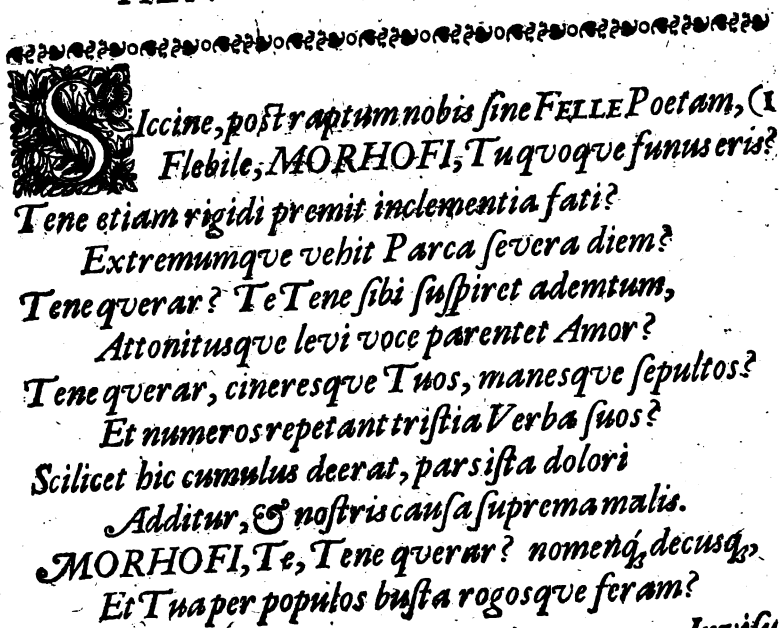 SIccine, post raptum nobis ſine FELLE Poetam, (1
Flebile, MORHOFI, Tu qvoqve funus eris?
Tene etiam rigidi premit inclementia fati?
Extremumqve vehit Parca ſevera diem?
Tene qverar? Te Tene ſibi ſuſpiret ademtum,
Attonitusqve levi voce parentet Amor?
Tene qverar, cineresqve Tuos, manesqve ſepultos?
Et numeros repetant triſtia Verba ſuos?
Scilicet hic cumulus deerat, pars iſta dolori
Additur, & noſtris cauſa ſuprema malis.
MORHOFI, Te, Tene qverar? nomenq́;, decusq́;,
Et Tua per populos buſta rogosqve feram?